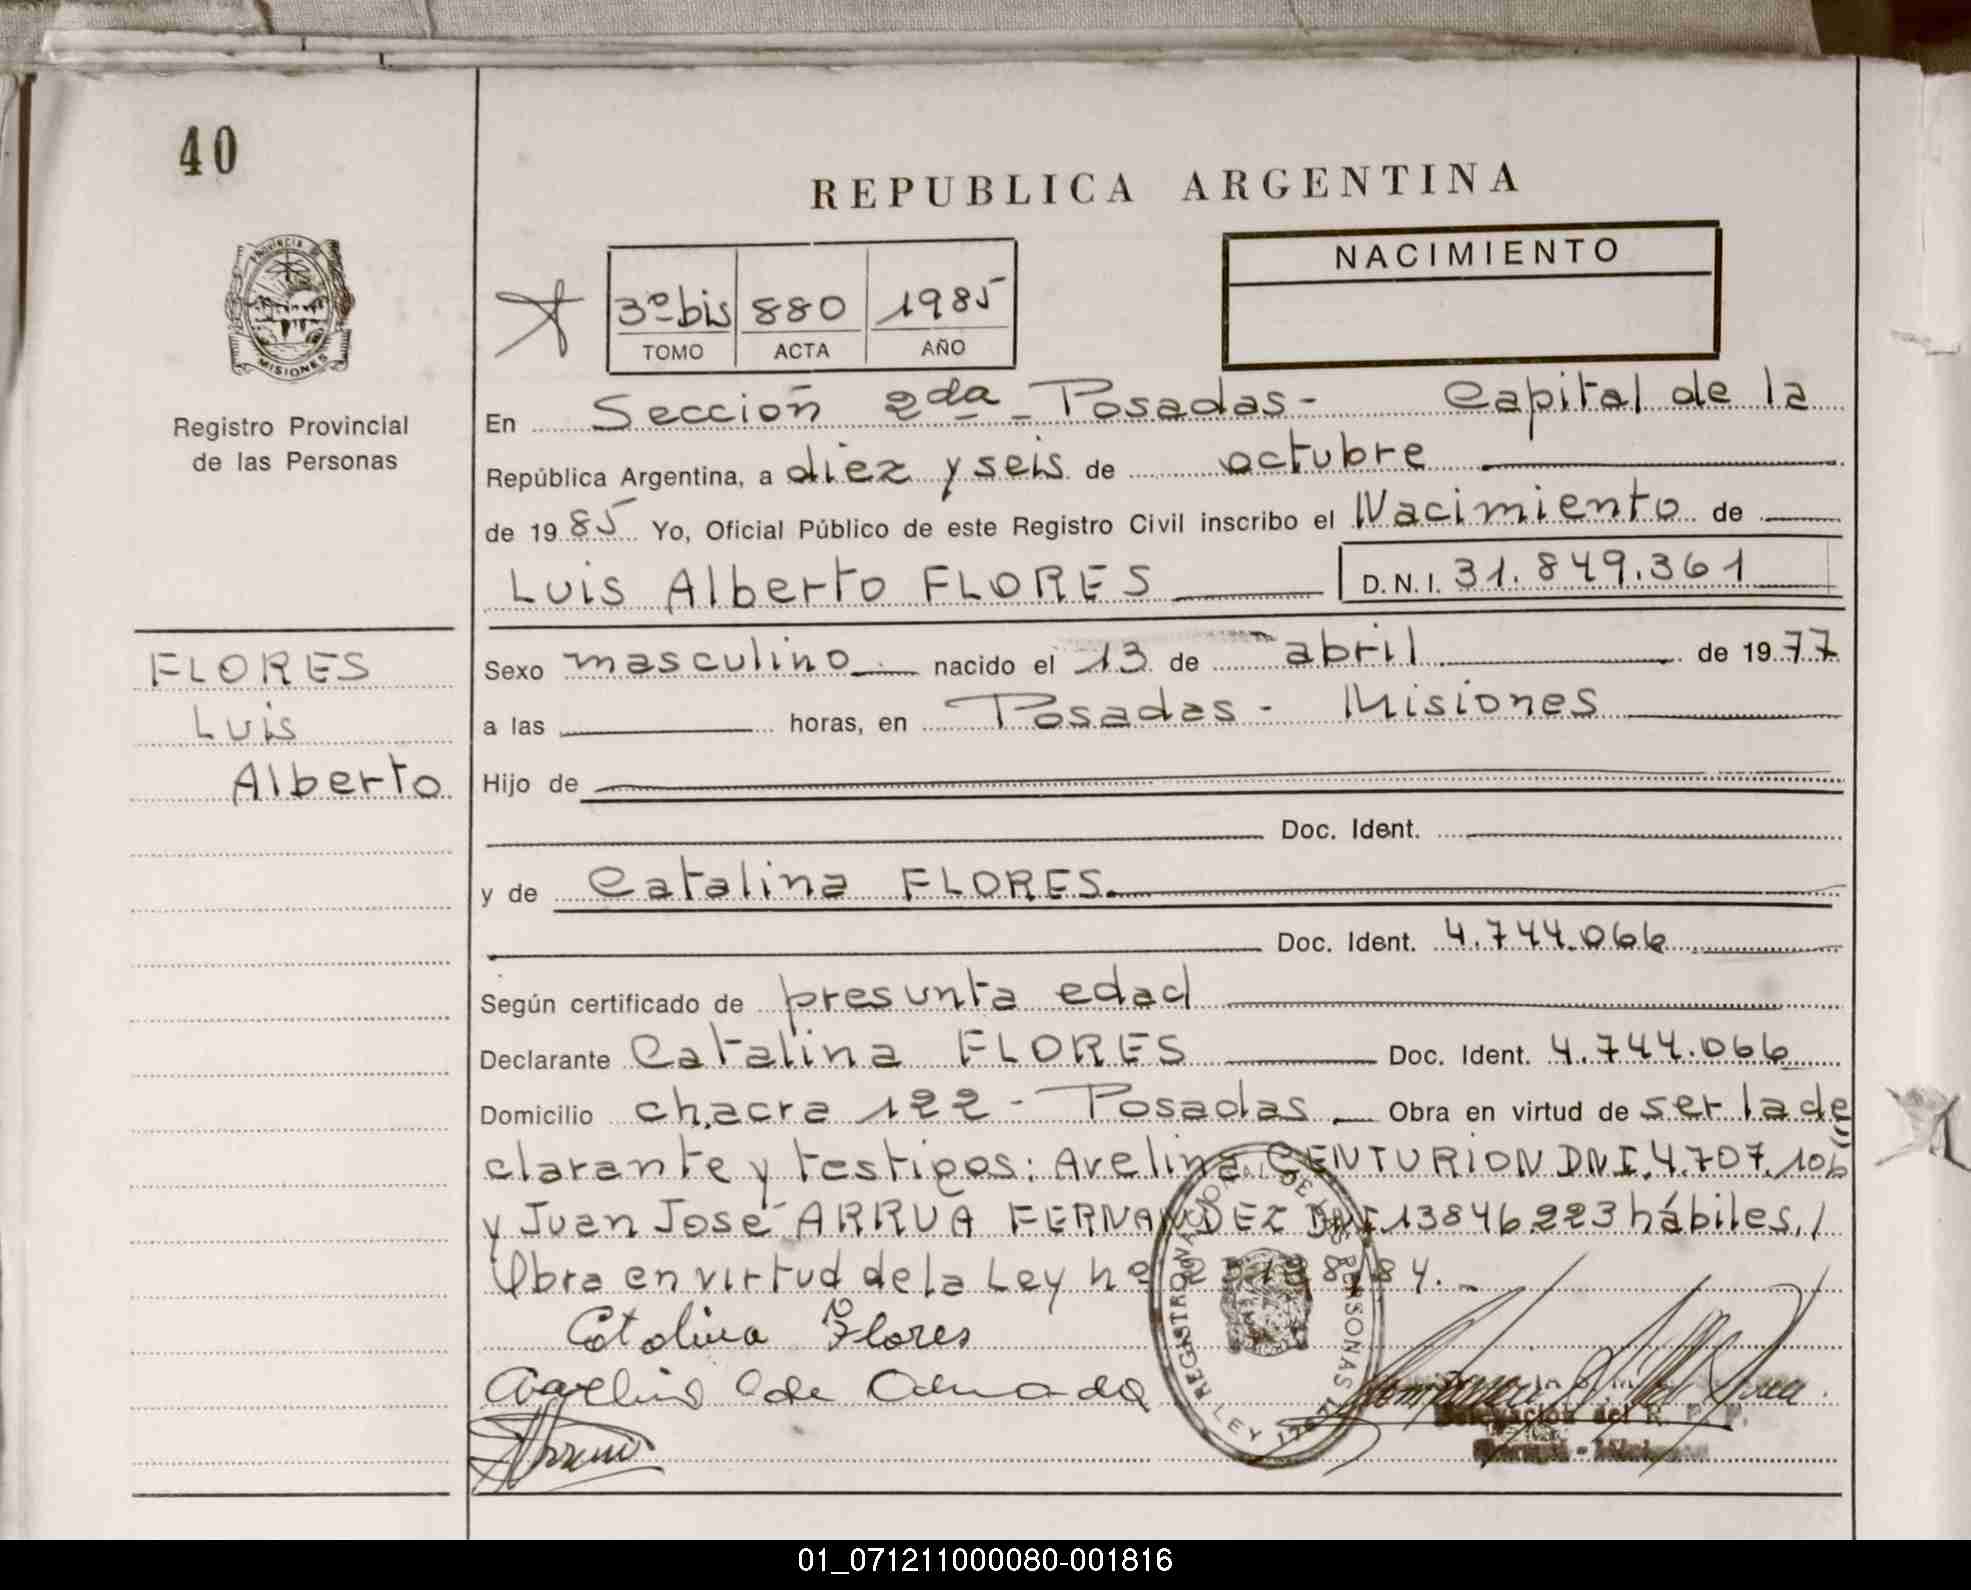 40
REPUBLICA ARGENTINA
PROVINCIA DE
MISIONES
Registro Provincial
de las Personas
3º bis 880 1985
TOMO ACTA AÑO
NACIMIENTO
En Sección 2da - Posadas - Capital de la
República Argentina, a diez y seis de octubre
de 1985 Yo, Oficial Público de este Registro Civil inscribo el Nacimiento de
Luis Alberto FLORES D.N.I. 31.849.361
FLORES
Luis
Alberto
Sexo masculino nacido el 13 de abril de 1977
a las horas, en Posadas - Misiones
Hijo de
Doc. Ident.
y de Catalina FLORES.
Doc. Ident. 4.744.066
Según certificado de presunta edad
Declarante Catalina FLORES Doc. Ident. 4.744.066
Domicilio chacra 122 - Posadas Obra en virtud de ser la de
clarante y testigos: Avelina CENTURION DNI. 4.707.106
y Juan José ARRUA FERNANDEZ DNI 13846223 hábiles.
Obra en virtud de la Ley nº 84.
Catalina Flores
REGISTRO NACIONAL DE LAS PERSONAS
LEY 17671
Delegación del R. P. P.
01_071211000080-001816